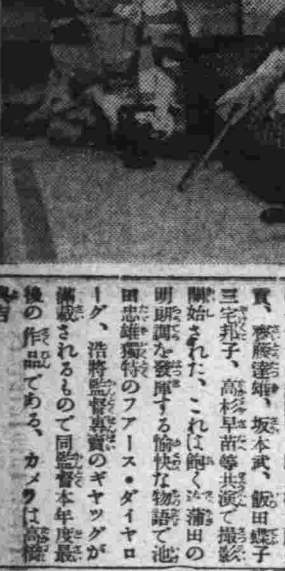 實、齋藤達雄、坂本武、飯田蝶子
三宅邦子、高杉早苗等共演で撮影
開始された、これは飽く迄蒲田の
明朗調を發揮する愉快な物語で池
田忠雄獨特のファース・ダイヤロ
ーグ、浩將監督專賣のギヤツグが
滿載されるもので同監督本年度最
後の作品である、カメラは高橋